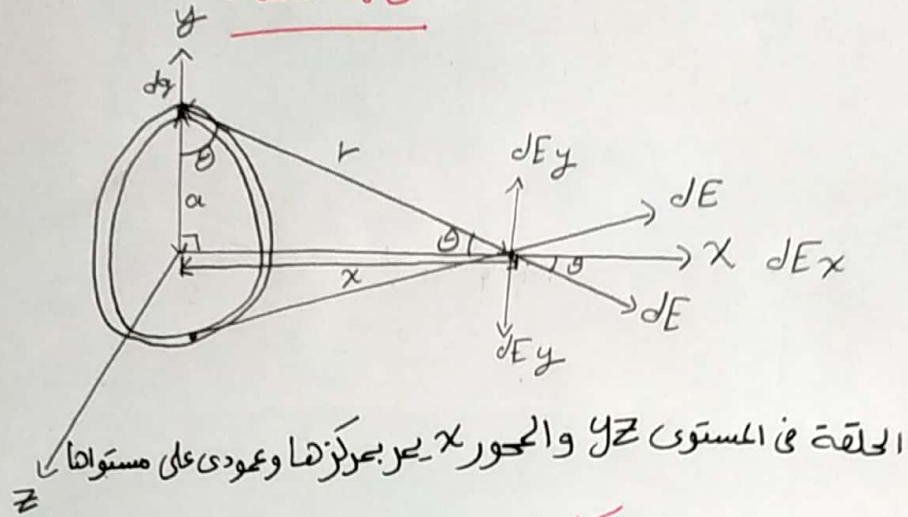 y
dq
θ
r
a
dEy
dE
θ
x
x
dEx
θ
dE
dEy
الحلقة فى المستوى yz والمحور x يمر بمركزها وعمودى على مستواها
z